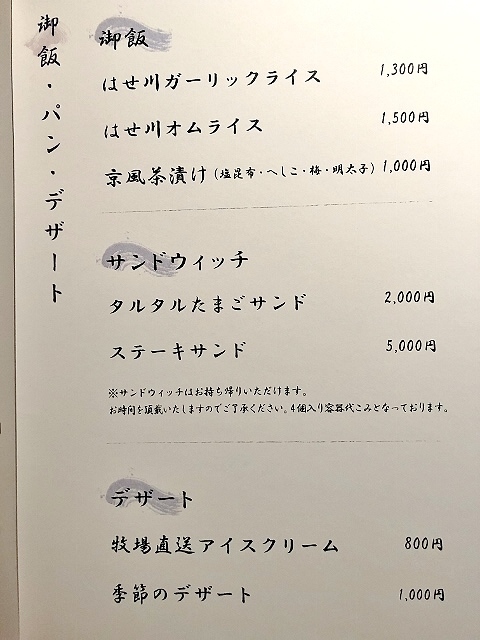 御飯・パン・デザート
御飯
はせ川ガーリックライス 1,300円
はせ川オムライス 1,500円
京風茶漬け(塩昆布・へしこ・梅・明太子) 1,000円
サンドウィッチ
タルタルたまごサンド 2,000円
ステーキサンド 5,000円
※サンドウィッチはお持ち帰りいただけます。
お時間を頂戴いたしますのでご了承ください。4個入り容器代こみとなっております。
デザート
牧場直送アイスクリーム 800円
季節のデザート 1,000円